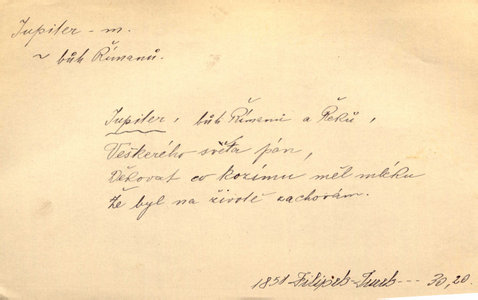 Jupiter - m.
~ bůh Římanů.
Jupiter, bůh Římanů a Řeků,
Veškerého světa pán,
Děkovat co kozímu měl mléku
Že byl na životě zachován.
1851 Filípek 30, 20.